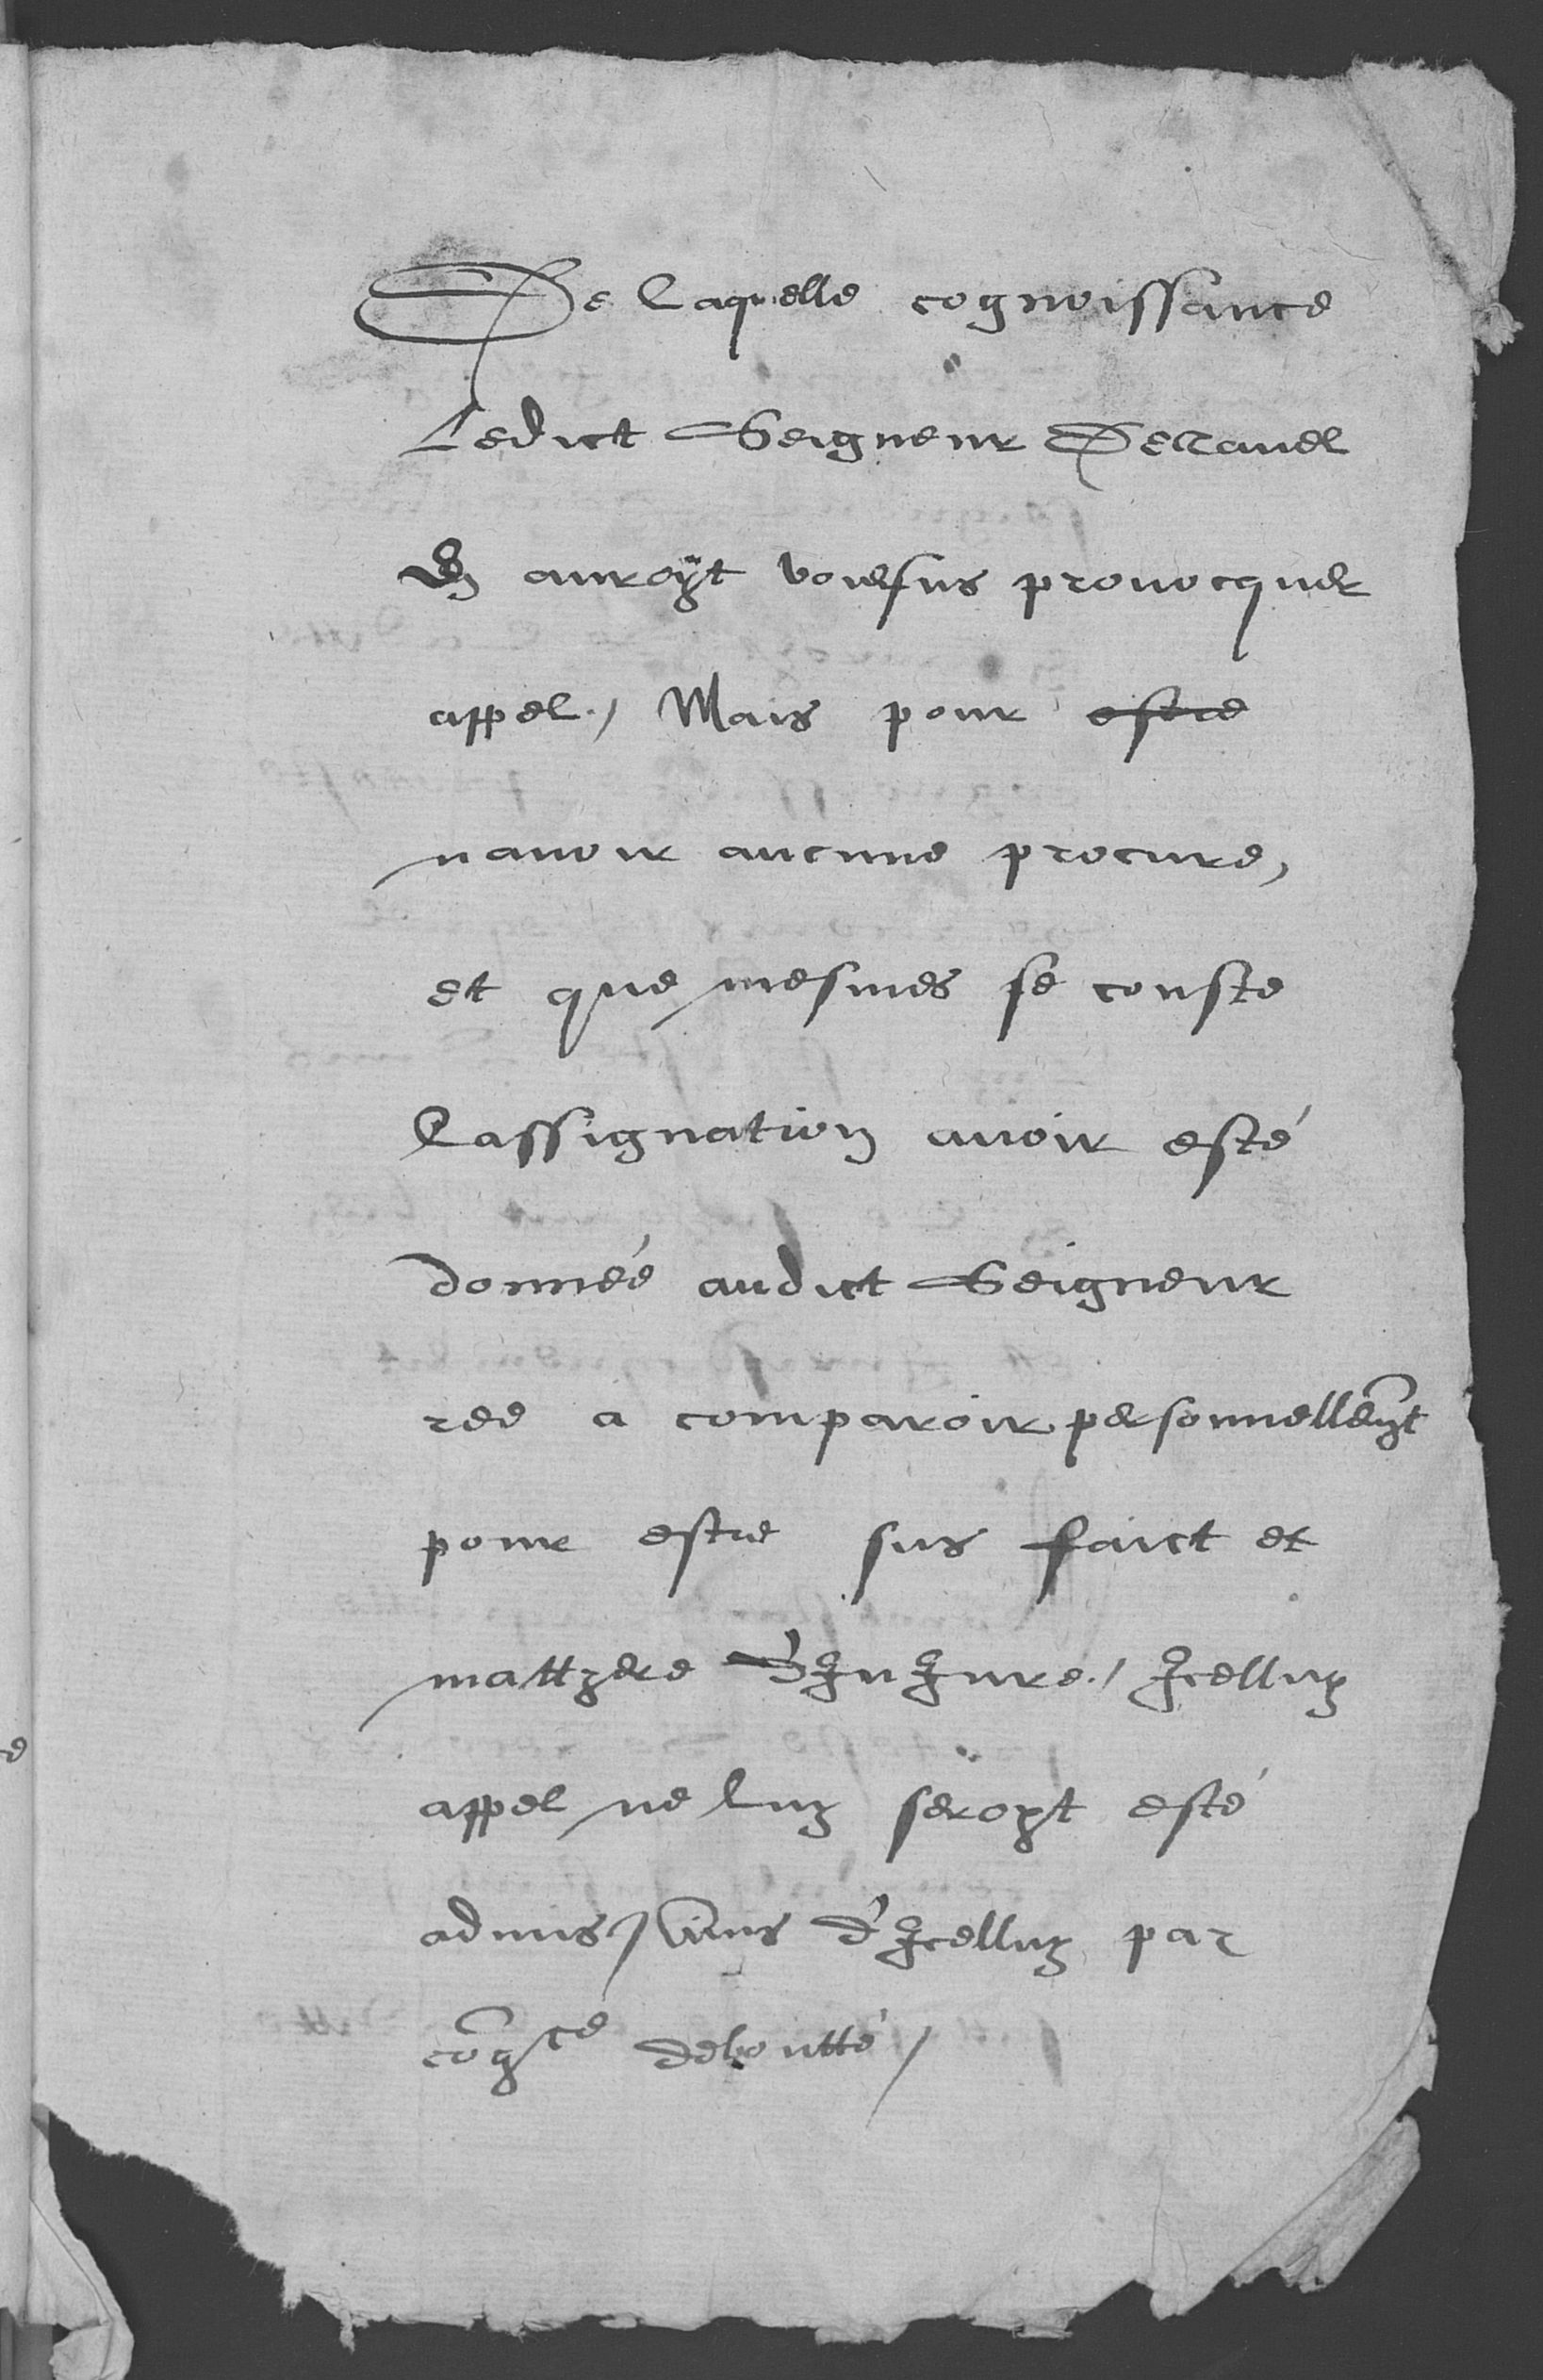 De laquelle cognoissance
Ledict Seigneur Dellavel
En auroÿt voulsus provocquer
appel./ Mais pour estre
navoir aucune procure,
et que mesmes se conste
Lassignation avoir esté
donnéé audict Seigneur
ree a comparoir personnellemẽt
pour estre sus faict et
mattyere D'InIure./ Icelluy
appel ne luy seroyt esté
admis / Ains d'Icelluy par
cõgce deboutté /